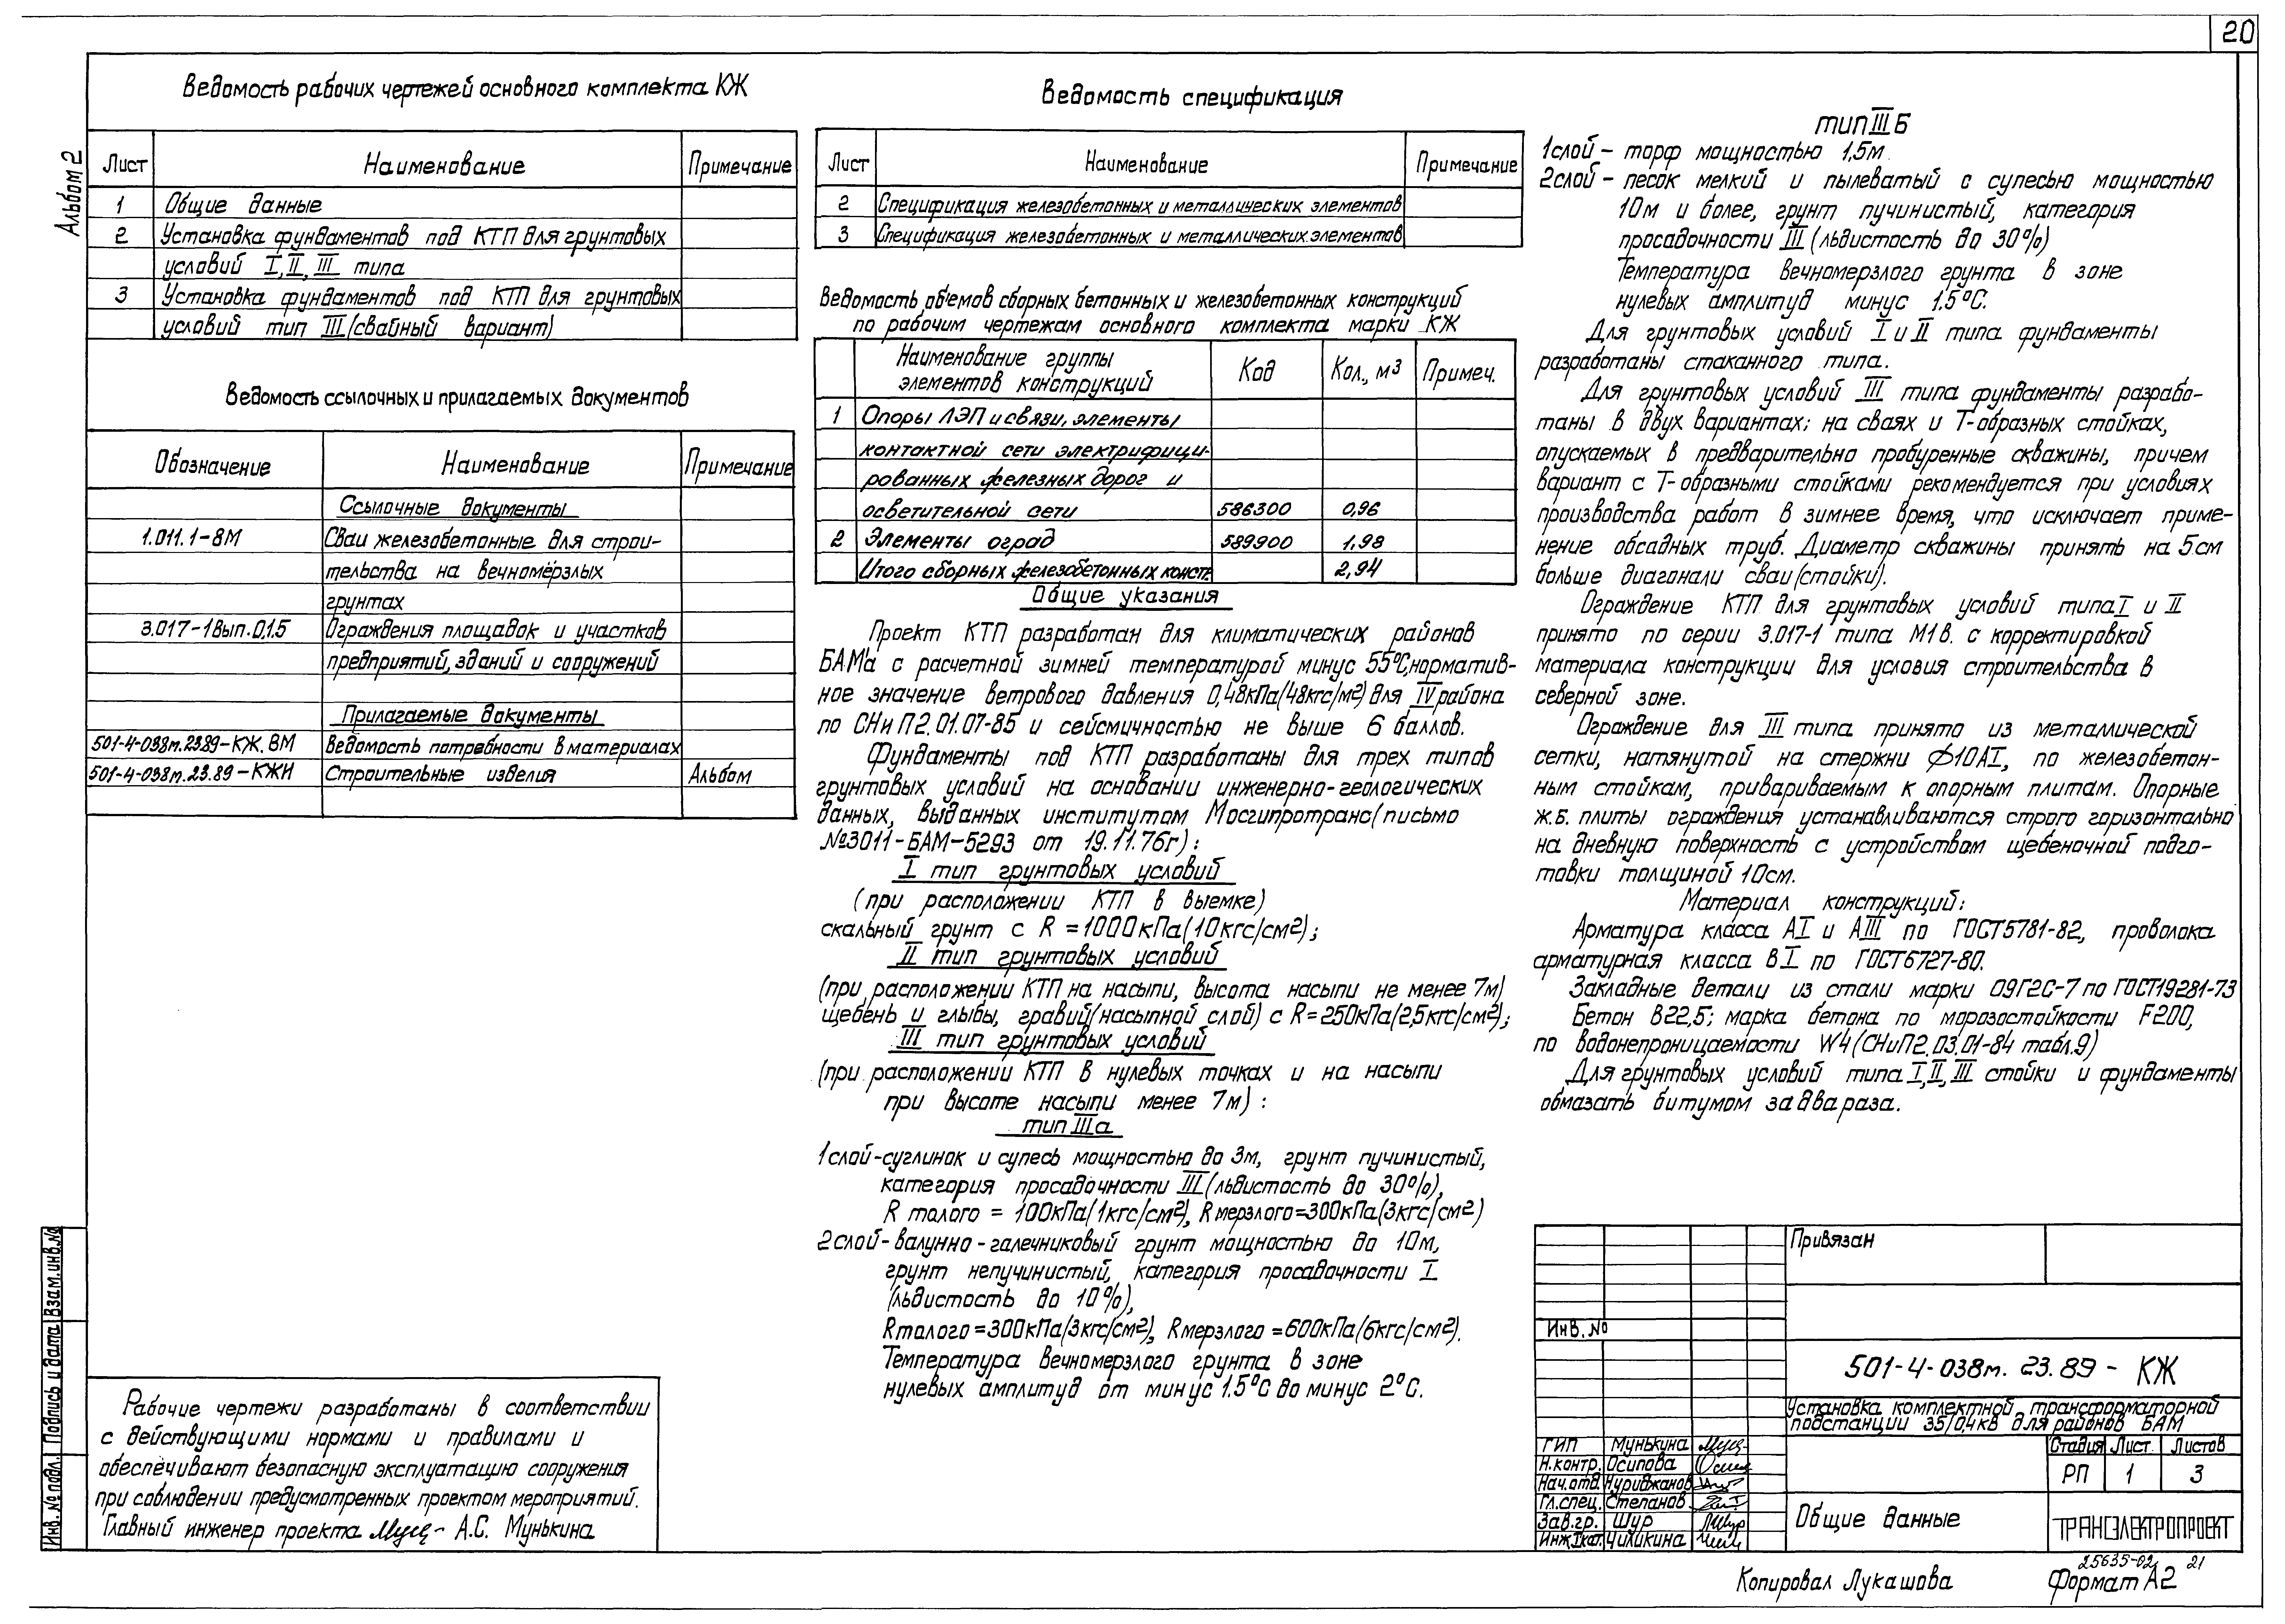 20
Альбом 2
Ведомость рабочих чертежей основного комплекта КЖ
Лист Наименование Примечание
1 Общие данные
2 Установка фундаментов под КТП для грунтовых
условий I, II, III типа
3 Установка фундаментов под КТП для грунтовых
условий тип III (свайный вариант)
Ведомость ссылочных и прилагаемых документов
Обозначение Наименование Примечание
Ссылочные документы
1.011.1-8М Сваи железобетонные для строи-
тельства на вечномёрзлых
грунтах
3.017-1 Вып.0,1.5 Ограждения площадок и участков
предприятий, зданий и сооружений
Прилагаемые документы
501-4-038м.23.89-КЖ.ВМ Ведомость потребности в материалах
501-4-038м.23.89-КЖИ Строительные изделия Альбом
Рабочие чертежи разработаны в соответствии
с действующими нормами и правилами и
обеспечивают безопасную эксплуатацию сооружения
при соблюдении предусмотренных проектом мероприятий.
Главный инженер проекта А.С. Мунькина
Взам.инв.№
Подпись и дата
Инв.№ подл.
Ведомость спецификация
Лист Наименование Примечание
2 Спецификация железобетонных и металлических элементов
3 Спецификация железобетонных и металлических элементов
Ведомость объемов сборных бетонных и железобетонных конструкций
по рабочим чертежам основного комплекта марки КЖ
Наименование группы
элементов конструкций Код Кол., м3 Примеч.
1 Опоры ЛЭП и связи, элементы
контактной сети электрифици-
рованных железных дорог и
осветительной сети 586300 0,96
2 Элементы оград 589900 1,98
Итого сборных железобетонных конст. 2,94
Общие указания
Проект КТП разработан для климатических районов
БАМ'а с расчетной зимней температурой минус 55°С, норматив-
ное значение ветрового давления 0,48кПа(48кгс/м2) для IV района
по СНиП2.01.07-85 и сейсмичностью не выше 6 баллов.
Фундаменты под КТП разработаны для трех типов
грунтовых условий на основании инженерно-геологических
данных, выданных институтом Мосгипротранс (письмо
№3011-БАМ-5293 от 19.11.76г):
I тип грунтовых условий
(при расположении КТП в выемке)
скальный грунт с R =1000кПа(10кгс/см2);
II тип грунтовых условий
(при расположении КТП на насыпи, высота насыпи не менее 7м)
щебень и глыбы, гравий(насыпной слой) с R=250кПа(2,5кгс/см2);
III тип грунтовых условий
(при расположении КТП в нулевых точках и на насыпи
при высоте насыпи менее 7м):
тип IIIа
1слой-суглинок и супесь мощностью до 3м, грунт пучинистый,
категория просадочности III (льдистость до 30%),
R талого = 100кПа(1кгс/см2), R мерзлого=300кПа(3кгс/см2)
2слой-валунно-галечниковый грунт мощностью до 10м,
грунт непучинистый, категория просадочности I
(льдистость до 10%),
R талого=300кПа(3кгс/см2), R мерзлого=600кПа(6кгс/см2).
Температура вечномерзлого грунта в зоне
нулевых амплитуд от минус 1.5°С до минус 2°С.
тип III Б
1слой - торф мощностью 1,5м
2слой - песок мелкий и пылеватый с супесью мощностью
10м и более, грунт пучинистый, категория
просадочности III (льдистость до 30%)
Температура вечномерзлого грунта в зоне
нулевых амплитуд минус 1.5°С.
Для грунтовых условий I и II типа фундаменты
разработаны стаканного типа.
Для грунтовых условий III типа фундаменты разрабо-
таны в двух вариантах: на сваях и Т-образных стойках,
опускаемых в предварительно пробуренные скважины, причем
вариант с Т-образными стойками рекомендуется при условиях
производства работ в зимнее время, что исключает приме-
нение обсадных труб. Диаметр скважины принять на 5см
больше диагонали сваи(стойки).
Ограждение КТП для грунтовых условий типа I и II
принято по серии 3.017-1 типа М1в. с корректировкой
материала конструкции для условия строительства в
северной зоне.
Ограждение для III типа принято из металлической
сетки, натянутой на стержни ϕ10АI, по железобетон-
ным стойкам, привариваемым к опорным плитам. Опорные
ж.б. плиты ограждения устанавливаются строго горизонтально
на дневную поверхность с устройством щебеночной подго-
товки толщиной 10см.
Материал конструкций:
Арматура класса АI и АIII по ГОСТ5781-82, проволока
арматурная класса ВI по ГОСТ6727-80.
Закладные детали из стали марки 09Г2С-7 по ГОСТ19281-73
Бетон В22,5; марка бетона по морозостойкости F200,
по водонепроницаемости W4(СНиП2.03.01-84 табл.9)
Для грунтовых условий типа I, II, III стойки и фундаменты
обмазать битумом за два раза.
Привязан
Инв.№
501-4-038м.23.89-КЖ
Установка комплектной трансформаторной
подстанции 35/0,4кВ для районов БАМ
ГИП Мунькина
Н.контр. Осипова
Нач.отд. Нуриджанов
Гл.спец. Степанов
Зав.гр. Шур
Инж.Iкат. Чиликина
Стадия Лист Листов
РП 1 3
Общие данные
ТРАНСЭЛЕКТРОПРОЕКТ
25635-02 21
Копировал Лукашова Формат А2